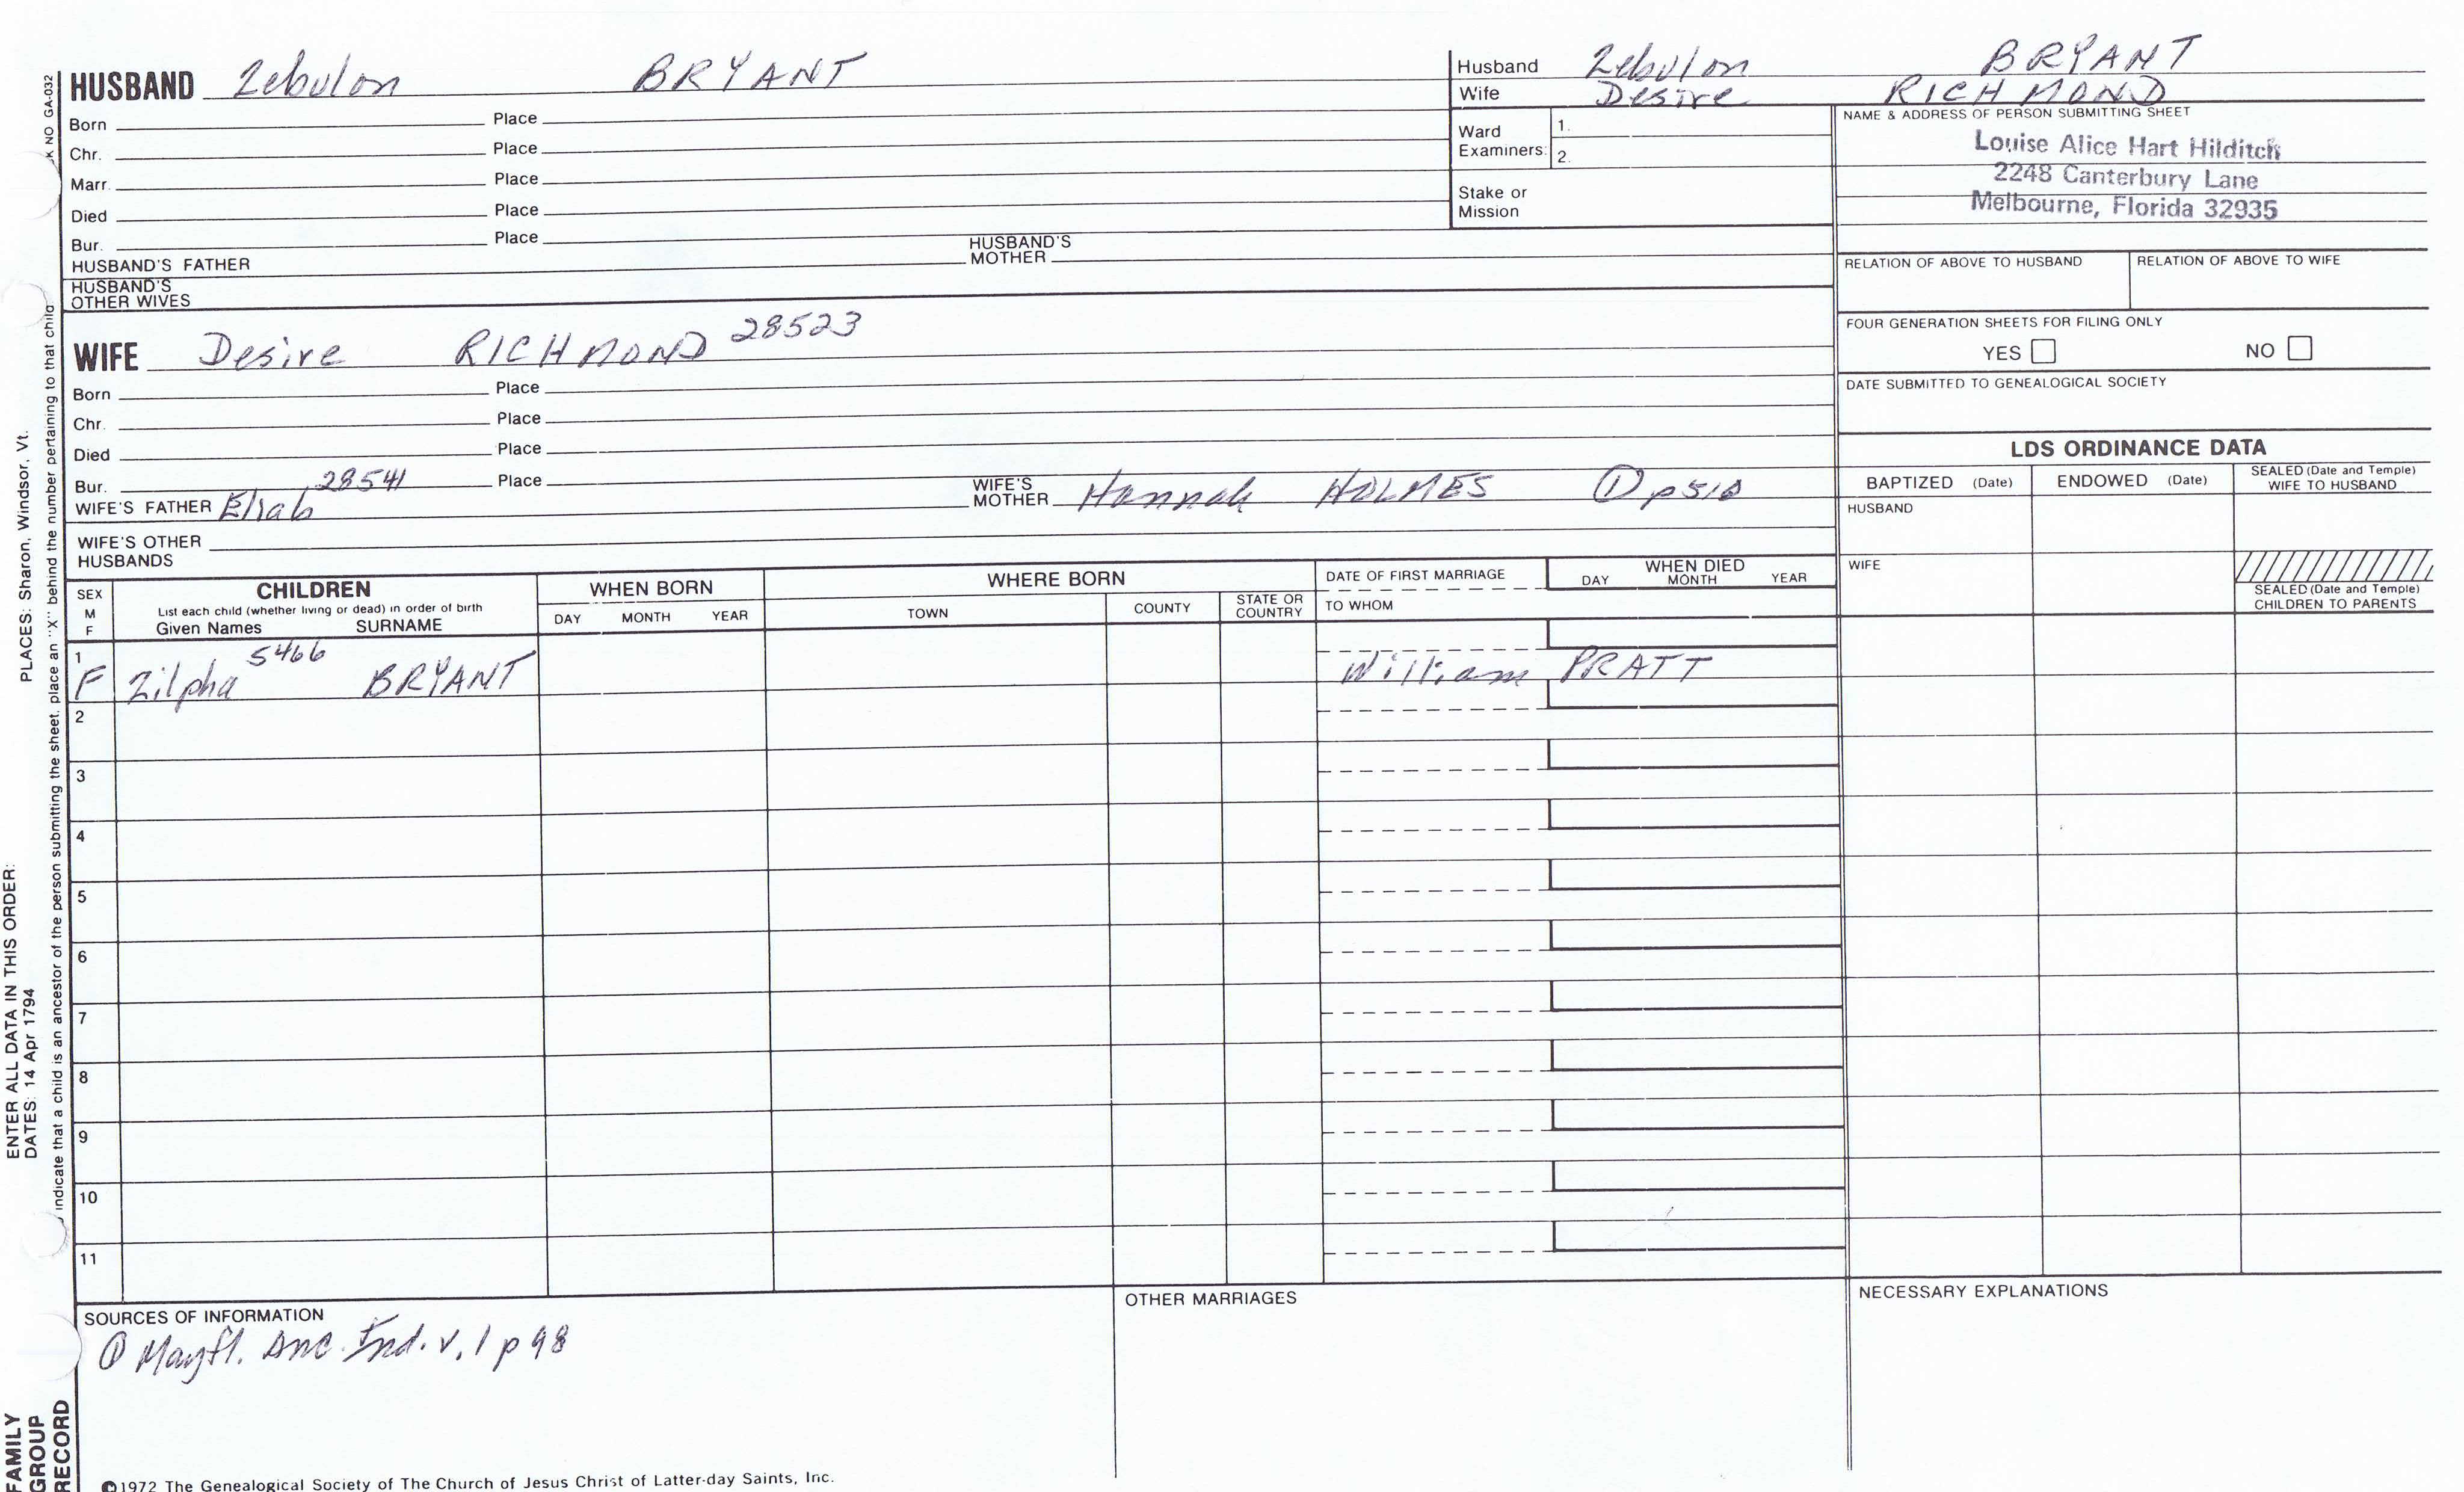 HUSBAND Zebulon BRYANT
Born Place
Chr. Place
Marr. Place
Died Place
Bur. Place
HUSBAND'S FATHER HUSBAND'S MOTHER
HUSBAND'S OTHER WIVES
WIFE Desire RICHMOND 28523
Born Place
Chr. Place
Died Place
Bur. Place
28541
WIFE'S FATHER Eliab WIFE'S MOTHER Hannah HOLMES ① p510
WIFE'S OTHER HUSBANDS
Husband Zebulon BRYANT
Wife Desire RICHMOND
Ward Examiners: 1.
2.
Stake or Mission
NAME & ADDRESS OF PERSON SUBMITTING SHEET
Louise Alice Hart Hilditch
2248 Canterbury Lane
Melbourne, Florida 32935
RELATION OF ABOVE TO HUSBAND RELATION OF ABOVE TO WIFE
FOUR GENERATION SHEETS FOR FILING ONLY
YES NO
DATE SUBMITTED TO GENEALOGICAL SOCIETY
LDS ORDINANCE DATA
BAPTIZED (Date) ENDOWED (Date) SEALED (Date and Temple) WIFE TO HUSBAND
HUSBAND
WIFE
SEALED (Date and Temple)
CHILDREN TO PARENTS
SEX M F
CHILDREN
List each child (whether living or dead) in order of birth
Given Names SURNAME
WHEN BORN
DAY MONTH YEAR
WHERE BORN
TOWN COUNTY STATE OR COUNTRY
DATE OF FIRST MARRIAGE
TO WHOM
WHEN DIED
DAY MONTH YEAR
1 5466
F Zilpha BRYANT William PRATT
2
3
4
5
6
7
8
9
10
11
SOURCES OF INFORMATION
① Mayfl. Anc. Ind. v. 1 p 98
OTHER MARRIAGES
NECESSARY EXPLANATIONS
©1972 The Genealogical Society of The Church of Jesus Christ of Latter-day Saints, Inc.
FAMILY
GROUP
RECORD
ENTER ALL DATA IN THIS ORDER:
DATES: 14 Apr 1794 PLACES: Sharon, Windsor, Vt.
indicate that a child is an ancestor of the person submitting the sheet, place an "X" behind the number pertaining to that child
NO GA-032